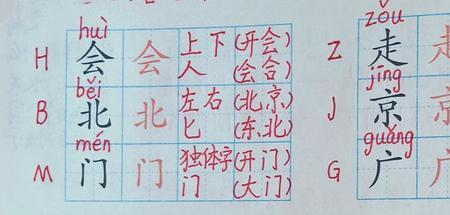 huì
H 会 会 上下 (开会)
人 (会合)
běi
B 北 北 左右 (北京)
匕 (东北)
mén
M 门 门 独体字 (开门)
门 (大门)
zǒu
Z 走
jīng
J 京
guǎng
G 广